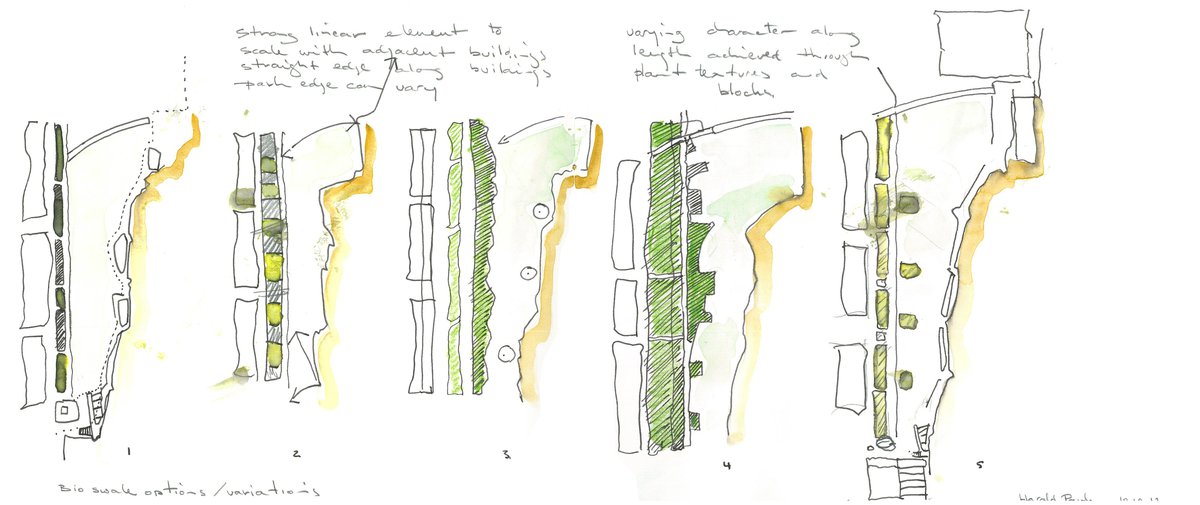 strong linear element to
scale with adjacent buildings
straight edge along buildings
park edge can vary
varying character along
length achieved through
plant textures and
blocks
1
2.
3.
4
5
Bio swale options/variations
Harald